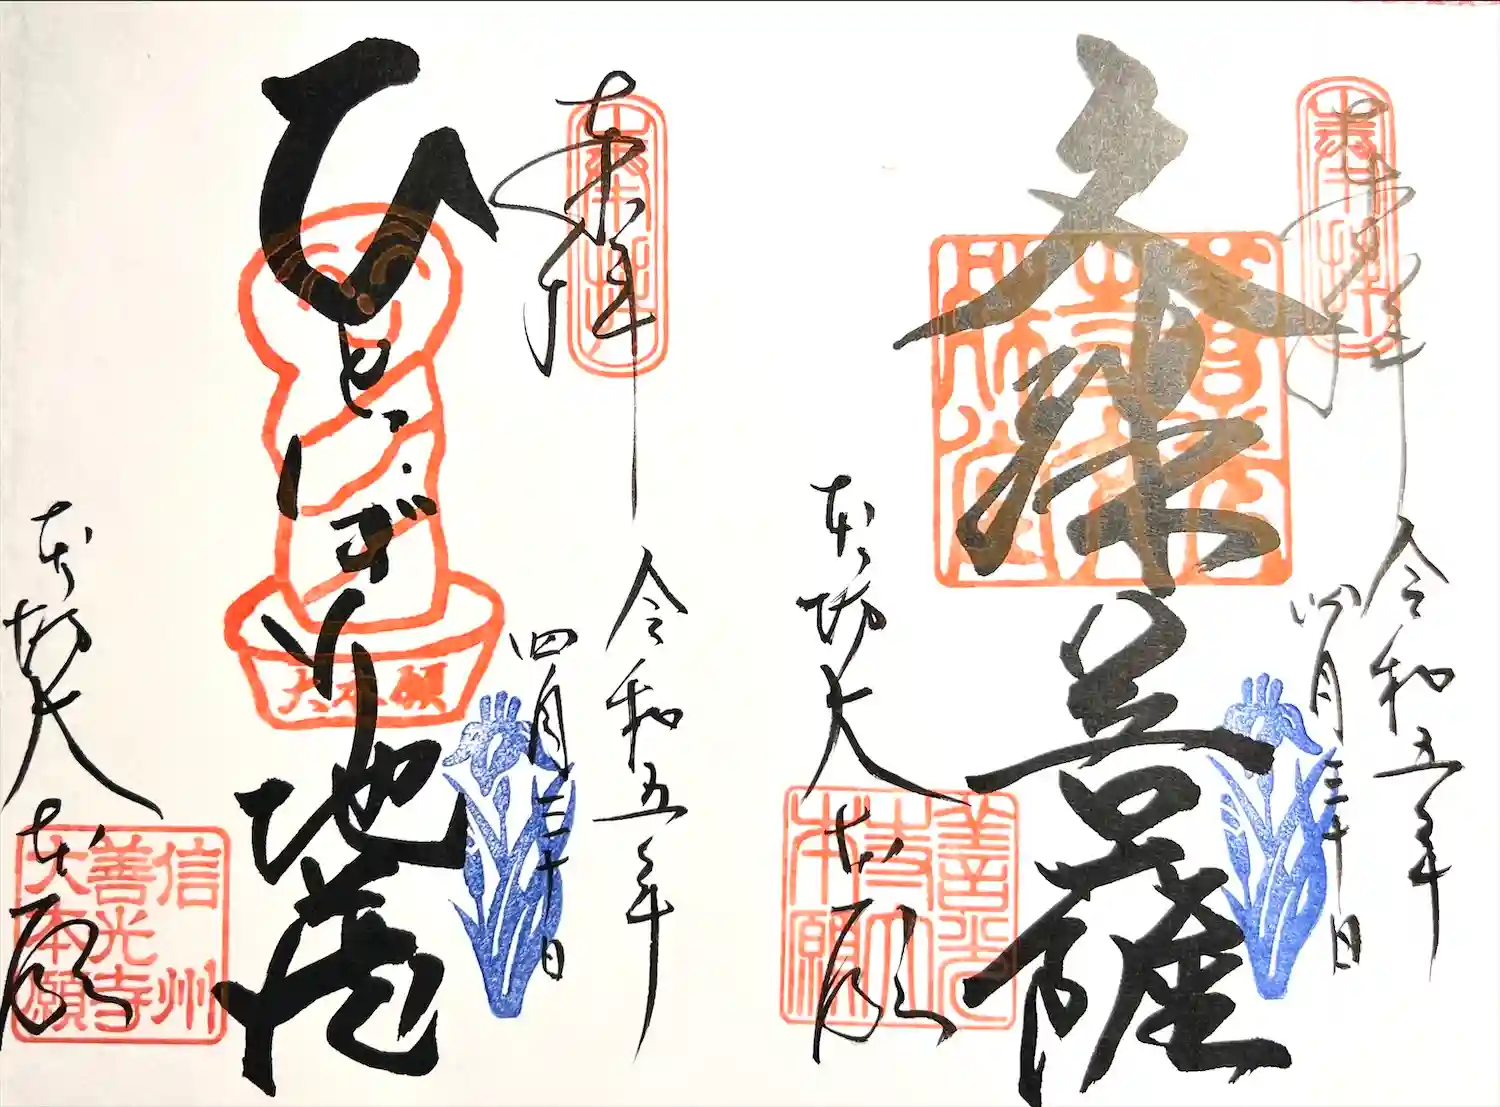 奉拝
奉拝
令和五年
四月三十日
文殊菩薩
本坊大本願
善光
寺大
本願
奉拝
奉拝
令和五年
四月三十日
ひとにぎり地蔵
大本願
本坊大本願
信州
善光寺
大本願